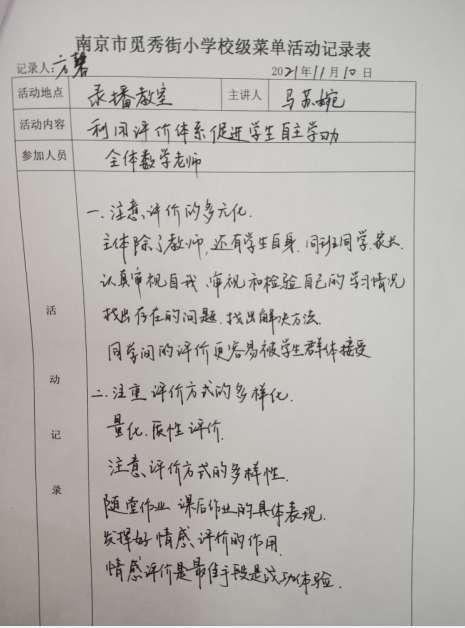 南京市觅秀街小学校级菜单活动记录表
记录人：方碧 2021年11月10日
活动地点 录播教室 主讲人 马苏婉
活动内容 利用评价体系促进学生自主学习
参加人员 全体数学老师
活动记录
一.注意评价的多元化.
主体除了教师,还有学生自身.同班同学.家长.
认真审视自我、审视和检验自己的学习情况
找出存在的问题.找出解决方法.
同学间的评价更容易被学生群体接受
二.注重评价方式的多样化.
量化.质性评价.
注意评价方式的多样性.
随堂作业 课后作业的具体表现.
发挥好情感评价的作用.
情感评价是最佳手段是成功体验.